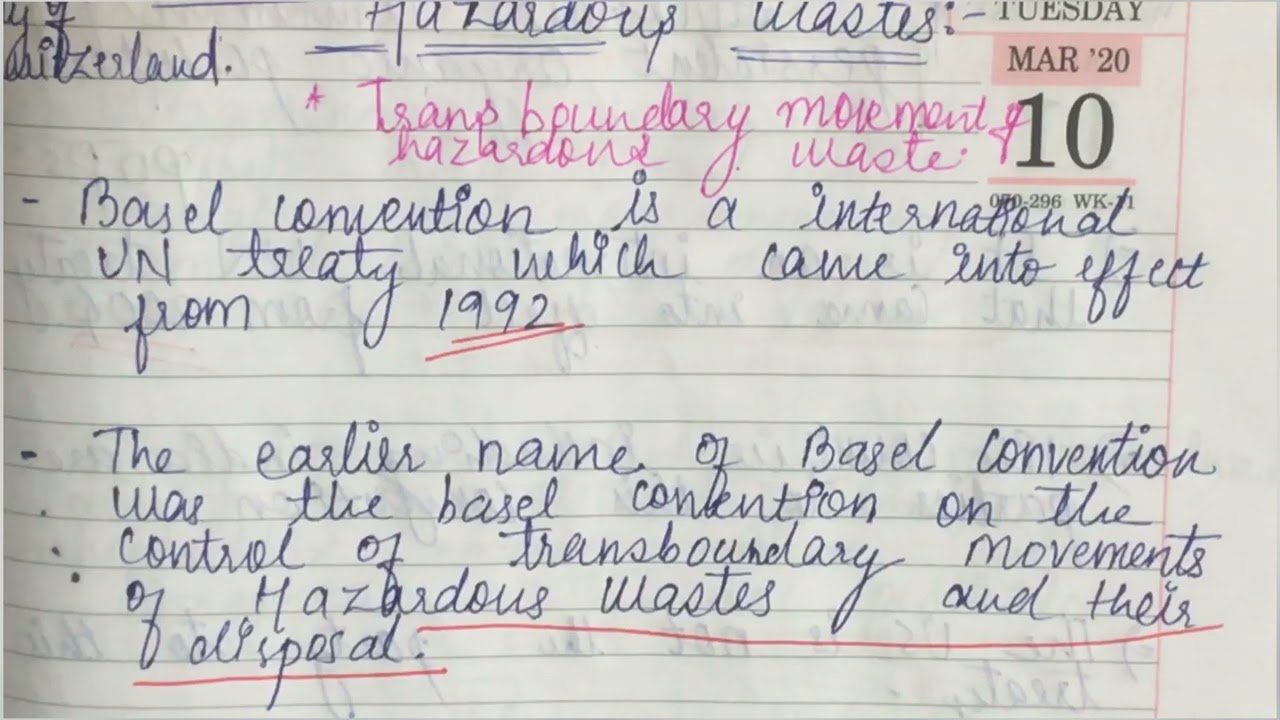 y of Hazardous Wastes:-
Switzerland.
TUESDAY
MAR '20
10
070-296 WK-11
* Trans boundary movement of
hazardous waste.
- Basel convention is a international
UN treaty which came into effect
from 1992
- The earlier name of Basel Convention
was the basel convention on the
control of transboundary movements
of Hazardous Wastes and their
disposal.